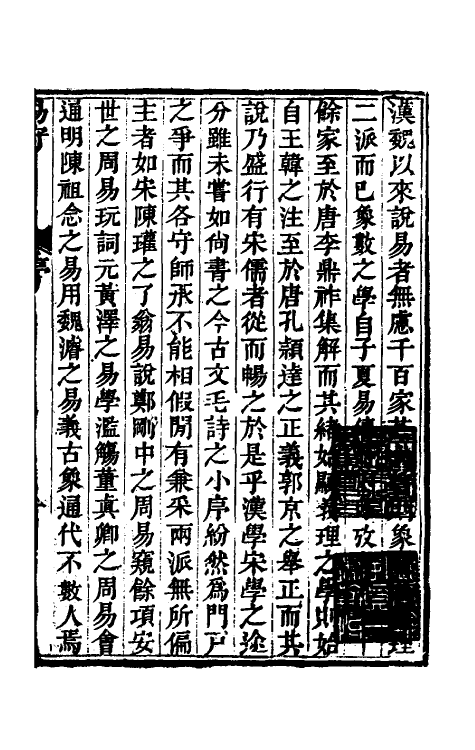 漢魏以來說易者無慮千百家其象理
二派而已象數之學自子夏易攷
餘家至於唐李鼎祚集解而其緒始顯義理之學則始
自王韓之注至於唐孔穎達之正義郭京之舉正而其
說乃盛行有宋儒者從而暢之於是乎漢學宋學之途
分雖未嘗如尙書之今古文毛詩之小序紛然爲門戶
之爭而其各守師承不能相假閒有兼采兩派無所偏
主者如宋陳瓘之了翁易說鄭剛中之周易窺餘項安
世之周易玩詞元黃澤之易學濫觴董真卿之周易會
通明陳祖念之易用魏濬之易義古象通代不數人焉
易考 序